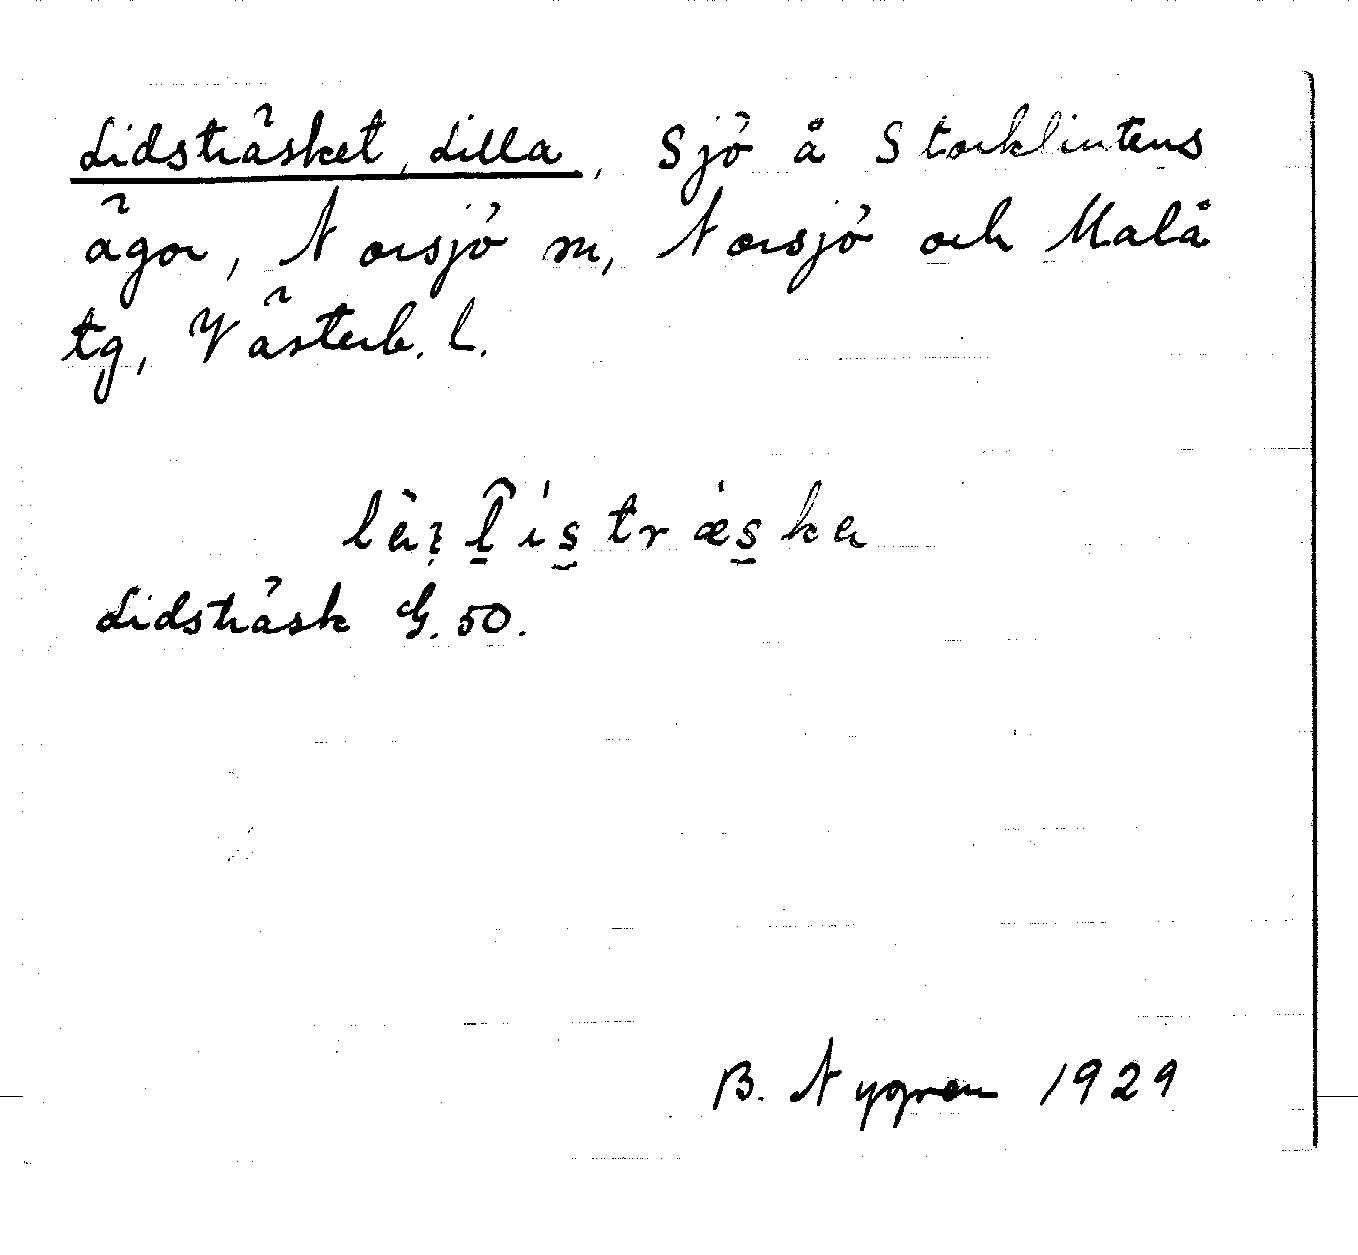 Lidsträsket, Lilla, Sjö å Storklintens
ägor, Norsjö sn, Norsjö och Malå
tg, Västerb. l.
Lidsträsk G. 50.
B. Nygren 1929